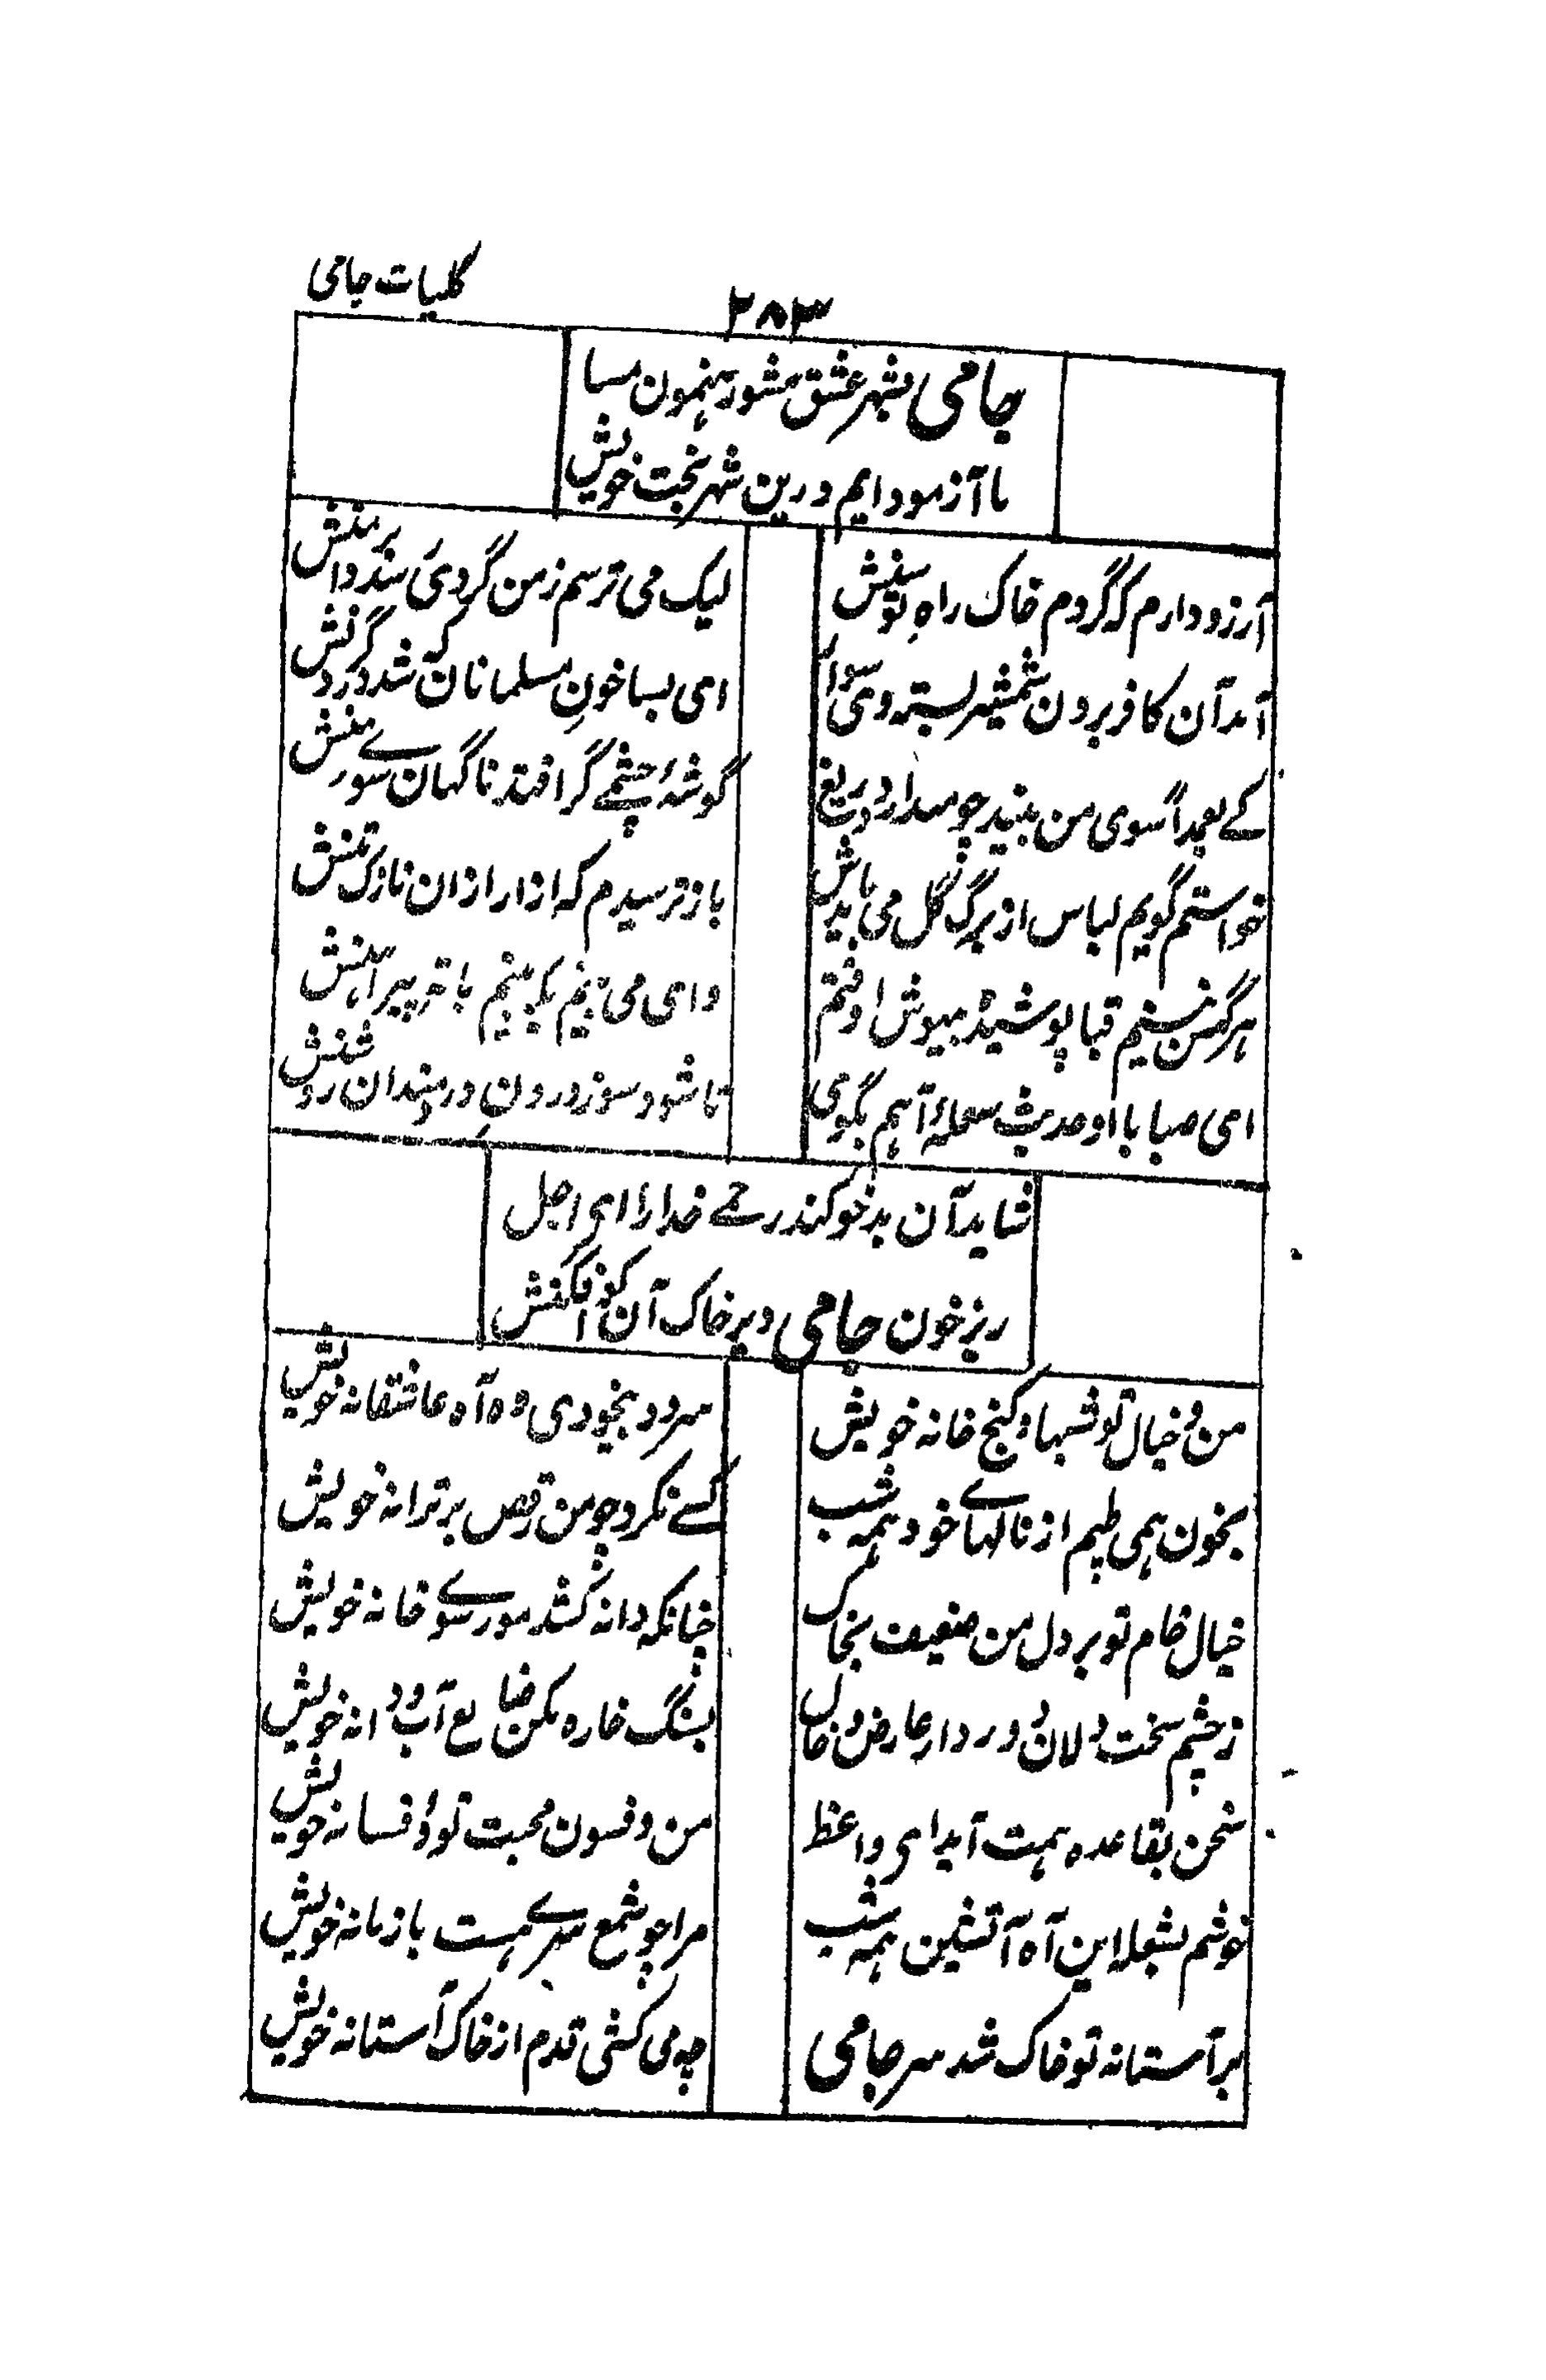 کلیات جامی
۲۸۳
جامی بشهر عشق مشو رہنمون مبا
ما آزمودہ ایم درین شہر بخت خویش
آرزو دارم کہ گردم خاک راہِ توسنش
لیک می ترسم ز من گردی رسد بر دامنش
آمد آن کافر برون شمشیر بستہ وی سوار
ای بسا خونِ مسلمانان کہ شد در گردنش
کے بعمداً سوی من بیند چو میدارد دریغ
گوشۂ چشمے گر افتد ناگہان سوے منش
خواستم گویم لباس از برگ گل می بایدش
باز ترسیدم کہ ازار از ان نازک تنش
ہر کسش بینم قبا پوشیدہ بیہوش اوفتم
وای می میرم کہ بینم با تہ پیراہنش
ای صبا با او حدیث شعلۂ آہم بگوی
تا شود سوز درونِ دردمندان روشنش
شاید آن بدخو کند رحمے خدارا ای اجل
ریز خون جامی و بر خاک آن کو افگنش
من و خیال تو شبها و کنج خانہ خویش
سرود بیخودی وہ آہ عاشقانہ خویش
بخون ہمی طپم از نالہاے خود ہمہ شب
کسے نکرد چو من رقص بر ترانہ خویش
خیال خام تو برد دل من ضعیف بخاک
چنانکہ دانہ کشد مور سوے خانہ خویش
ز چشم سخت دلان دور دار عارض و خال
بسنگ خارہ مکن ضایع آب و دانہ خویش
سخن بقاعدہ ہمت آید ای واعظ
من و فسون محبت تو و فسانہ خویش
خوشم بشعلہ این آہ آتشین ہمہ شب
مرا چو شمع سرے ہست با زمانہ خویش
بر آستانہ تو خاک شد سر جامی
چہ می کشی قدم از خاک آستانہ خویش